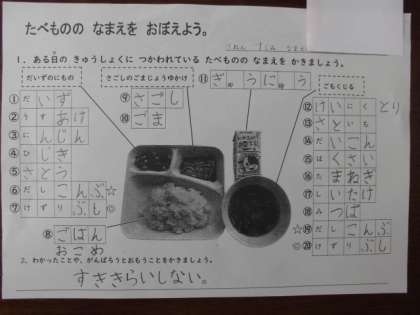 たべものの なまえを おぼえよう。
1. ある日の きゅうしょくに つかわれている たべものの なまえを かきましょう。
だいずのにもの
さごしのごまじょうゆかけ
⑪ぎゅうにゅう
ごもくじる
①だいず
②うすあげ
③にんじん
④ひじき
⑤さとう
⑥だしこんぶ☆
⑦けずりぶし◎
⑧ごはん
おこめ
⑨さごし
⑩ごま
⑫けいにく とり
⑬さといも
⑭だいこん
⑮はくさい
⑯たまねぎ
⑰しいたけ
⑱みつば
☆⑲だしこんぶ
◎⑳けずりぶし
2. わかったことや、がんばろうとおもうことをかきましょう。
すききらいしない。